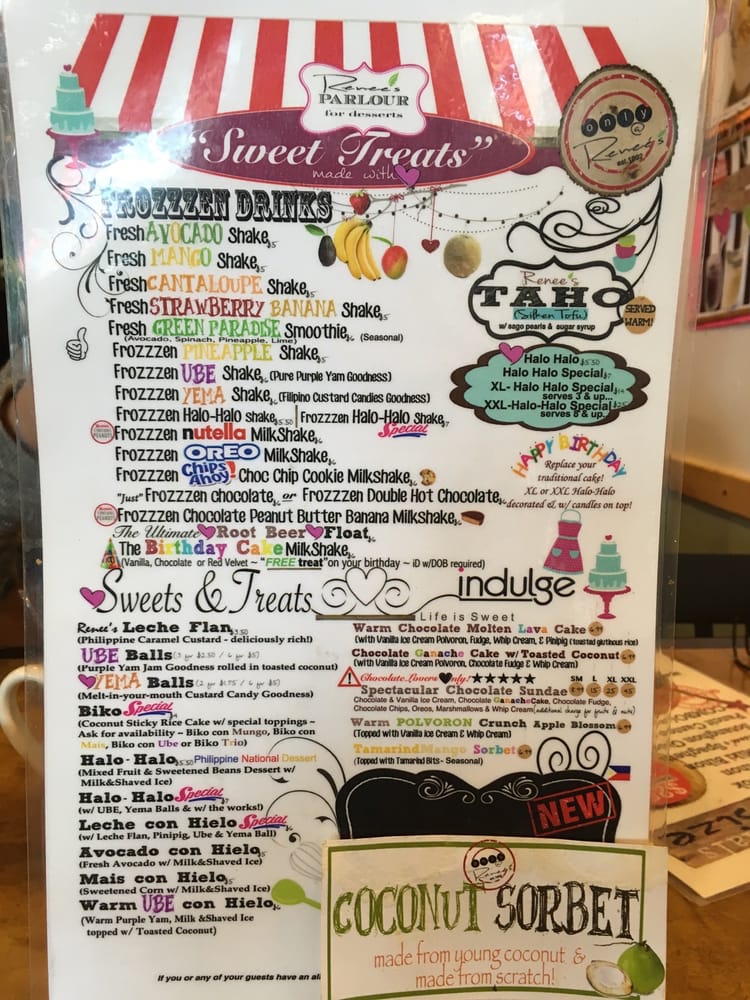 Renee's
PARLOUR
for desserts
"Sweet Treats"
made with
only
@
Renee's
est. 1992
FROZZZEN DRINKS
Fresh AVOCADO Shake $5
Fresh MANGO Shake $5
Fresh CANTALOUPE Shake $5
Fresh STRAWBERRY BANANA Shake $5
Fresh GREEN PARADISE Smoothie $6 (Seasonal)
(Avocado, Spinach, Pineapple, Lime)
Frozzzen PINEAPPLE Shake $5
Frozzzen UBE Shake $6 (Pure Purple Yam Goodness)
Frozzzen YEMA Shake $6 (Filipino Custard Candies Goodness)
Frozzzen Halo-Halo shake $5.50 | Frozzzen Halo-Halo Shake $7
Special
Frozzzen nutella MilkShake $6
Frozzzen OREO MilkShake $6
Frozzzen Chips Ahoy! Choc Chip Cookie Milkshake $6
"Just" Frozzzen chocolate $6 or Frozzzen Double Hot Chocolate $6
Frozzzen Chocolate Peanut Butter Banana Milkshake $6
The Ultimate Root Beer Float $6
The Birthday Cake MilkShake $6
(Vanilla, Chocolate or Red Velvet ~ "FREE treat" on your birthday ~ iD w/DOB required)
Renee's
TAHO
(Silken Tofu)
w/ sago pearls & sugar syrup
SERVED
WARM!
Halo Halo $5.50
Halo Halo Special $7
XL- Halo Halo Special $14
serves 3 & up...
XXL-Halo-Halo Special $25
serves 6 & up..
HAPPY BIRTHDAY
Replace your
traditional cake!
XL or XXL Halo-Halo
decorated & w/ candles on top!
Sweets & Treats
Renee's Leche Flan $3.50
(Philippine Caramel Custard - deliciously rich!)
UBE Balls (3 for $2.50 / 6 for $5)
(Purple Yam Jam Goodness rolled in toasted coconut)
YEMA Balls (2 for $1.75 / 6 for $5)
(Melt-in-your-mouth Custard Candy Goodness)
Biko Special $4
(Coconut Sticky Rice Cake w/ special toppings ~
Ask for availability ~ Biko con Mungo, Biko con
Mais, Biko con Ube or Biko Trio)
Halo-Halo $5.50 Philippine National Dessert
(Mixed Fruit & Sweetened Beans Dessert w/
Milk&Shaved Ice)
Halo-Halo Special $7
(w/ UBE, Yema Balls & w/ the works!)
Leche con Hielo Special $6
(w/ Leche Flan, Pinipig, Ube & Yema Ball)
Avocado con Hielo $5
(Fresh Avocado w/ Milk&Shaved Ice)
Mais con Hielo $5
(Sweetened Corn w/ Milk&Shaved Ice)
Warm UBE con Hielo $6
(Warm Purple Yam, Milk &Shaved Ice
topped w/ Toasted Coconut)
If you or any of your guests have an al
indulge
Life is Sweet
Warm Chocolate Molten Lava Cake 6.99
(with Vanilla Ice Cream Polvoron, Fudge, Whip Cream, & Pinipig (toasted glutinous rice)
Chocolate Ganache Cake w/ Toasted Coconut 6.99
(with Vanilla Ice Cream Polvoron, Chocolate Fudge & Whip Cream)
Chocolate Lovers Only! ★★★★★ SM L XL XXL
Spectacular Chocolate Sundae 8.99 15 25 45
Chocolate & Vanilla Ice Cream, Chocolate Ganache Cake, Chocolate Fudge,
Chocolate Chips, Oreos, Marshmallows & Whip Cream (additional charge for fruits & nuts)
Warm POLVORON Crunch Apple Blossom 6.99
(Topped with Vanilla Ice Cream & Whip Cream)
Tamarind Mango Sorbet 6.99
(Topped with Tamarind Bits - Seasonal)
NEW
only @ Renee's
COCONUT SORBET
made from young coconut &
made from scratch!